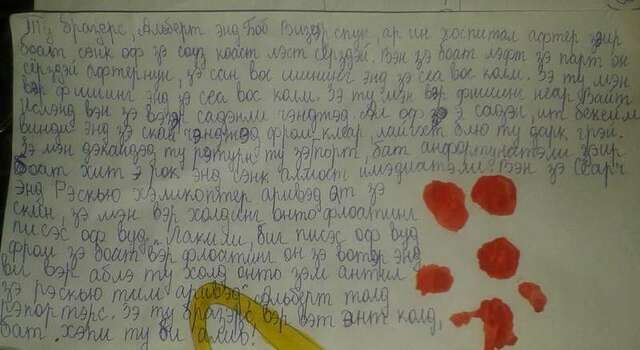 Ту Бразерс, Альберт энд Боб Визер спун, ар ин хоспитал афтер зэир
боат сэнк оф зэ сауз коаст лэст сёрздэй. Вэн зэ боат лэфт зэ парт он
сёрздэй афтернун, зэ сан вос шининг энд зэ сеа вос колм. Зэ ту мэн
вэр фишинг энд зэ сеа вос колм. Зэ ту мэн вэр фишинг неар Вайт
Ислэнд вэн зэ вэзэр садэнли чэнджэд. Ол оф э садэн, ит бекейм
винди энд зэ скай чэнджэд фром клеар, лайт блю ту дарк грэй.
Зэ мэн дэкайдэд ту рэтурн ту зэ порт, бат анфортунатэли зэир
боат хит э рок энд сэнк алмост имэдиатэли. Вэн зэ сеарч
энд Рэскью хэликоптер аривэд ат зэ
скин, зэ мэн вэр холдинг онто флоатинг
писэс оф вуд. "Лакили, биг писэс оф вуд
фром зэ боат вэр флоатинг он зэ вотэр энд
ви вэр аблэ ту холд онто зэм антил
зэ рэскью тим аривэд" Альберт толд
рэпортэрс. Зэ ту бразэрс вэр вэт энт колд,
бат хэпи ту би алив!